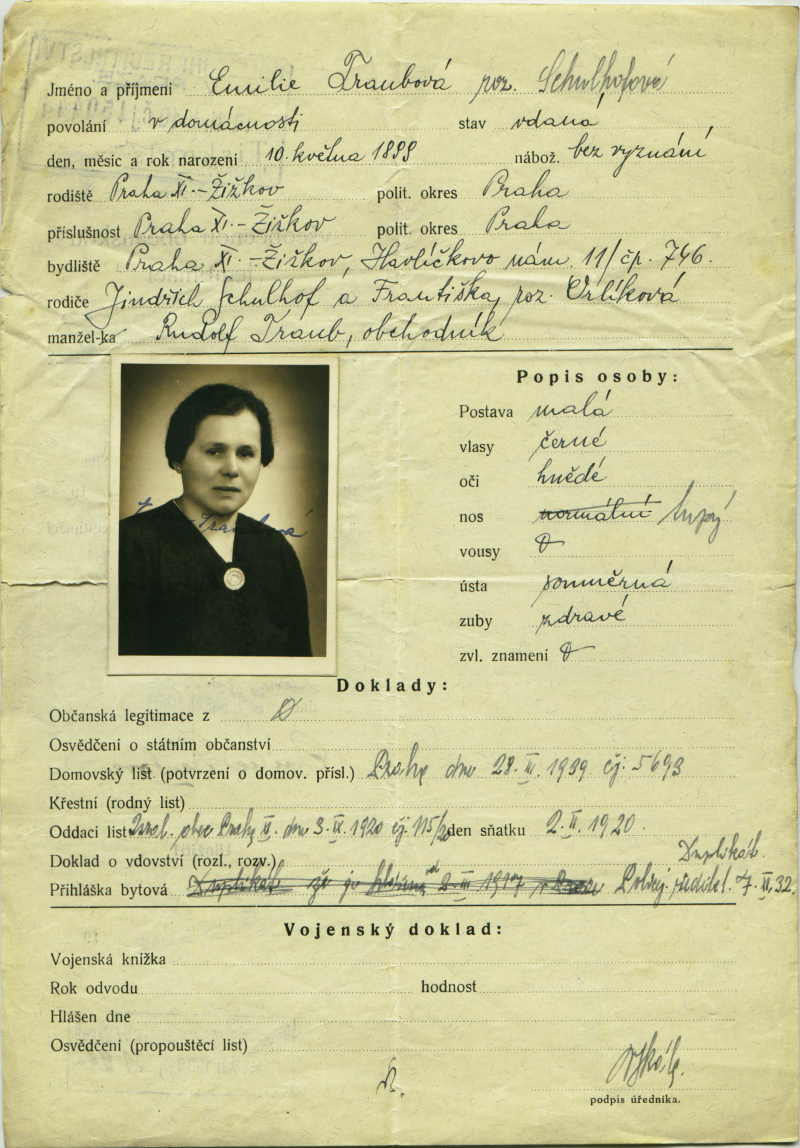 Jméno a příjmení Emilie Traubová roz. Schulhofová
povolání v domácnosti stav vdaná
den, měsíc a rok narození 10. května 1888 nábož. bez vyznání
rodiště Praha XI.-Žižkov polit. okres Praha
příslušnost Praha XI.-Žižkov polit. okres Praha
bydliště Praha XI.-Žižkov, Havlíčkovo nám. 11/čp. 746.
rodiče Jindřich Schulhof a Františka, roz. Orlíková
manžel-ka Rudolf Traub, obchodník
Popis osoby:
Postava malá
vlasy černé
oči hnědé
nos normální tupý
vousy
ústa souměrná
zuby zdravé
zvl. znamení
Traubová
Doklady:
Občanská legitimace z
Osvědčení o státním občanství
Domovský list (potvrzení o domov. přísl.) Prahy dne 28. III. 1939 čj. 5693
Křestní (rodný list)
Oddací list Israel. obec Prahy dne 3. 1920 čj. 115/20 den sňatku 2. II. 1920.
Doklad o vdovství (rozl., rozv.) Duplikát
Přihláška bytová Duplikát že je hlášena od 2. III 1917 v Praze Policej. ředitel. 7. II. 32.
Vojenský doklad:
Vojenská knížka
Rok odvodu hodnost
Hlášen dne
Osvědčení (propouštěcí list)
podpis úředníka.